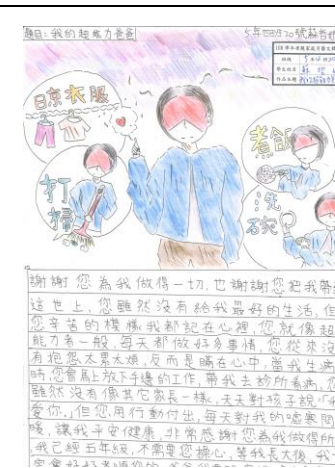 題目:我的超能力爸爸
5年四班20號蘇
晾衣服
煮飯
打掃
洗碗
謝謝您為我做得一切,也謝謝您把我帶
這世上,您雖然沒有給我最好的生活,但
您辛苦的模樣我都記在心裡,您就像超
能力者一般,每天都做好多事情,您從來沒
有抱怨太累太煩,反而是瞞在心中,當我生病
時,您會馬上放下手邊的工作,帶我去診所看病,
雖然沒有像其它家長一樣,天天對孩子說:「我
愛你」,但您用行動付出,每天對我的噓寒問
暖,讓我平安健康,非常感謝您為我做得所
我已經五年級,不需要您擔心,等我長大後,我